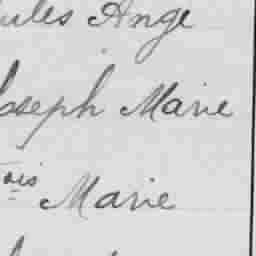 ules Ange
oseph Marie
ois Marie